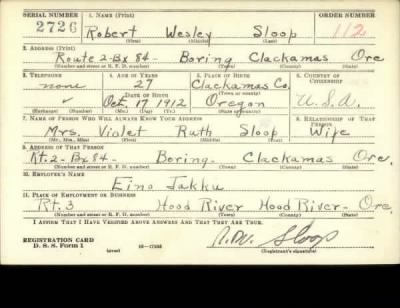 SERIAL NUMBER 1. NAME (Print) ORDER NUMBER
2726 Robert Wesley Sloop 112
(First) (Middle) (Last)
2. ADDRESS (Print)
Route 2-Bx 84- Boring Clackamas Ore
(Number and street or R. F. D. number) (Town) (County) (State)
3. TELEPHONE 4. AGE IN YEARS 5. PLACE OF BIRTH 6. COUNTRY OF CITIZENSHIP
none 27 Clackamas Co.
DATE OF BIRTH (Town or county)
✓ Oct. 17 1912 Oregon U.S.A.
(Exchange) (Number) (Mo.) (Day) (Yr.) (State or country)
7. NAME OF PERSON WHO WILL ALWAYS KNOW YOUR ADDRESS 8. RELATIONSHIP OF THAT PERSON
Mrs. Violet Ruth Sloop Wife
(Mr., Mrs., Miss) (First) (Middle) (Last)
9. ADDRESS OF THAT PERSON
Rt. 2-Bx 84- Boring- Clackamas Ore.
(Number and street or R. F. D. number) (Town) (County) (State)
10. EMPLOYER'S NAME
Eino Jakku
11. PLACE OF EMPLOYMENT OR BUSINESS
Rt. 3 Hood River Hood River- Ore.
(Number and street or R. F. D. number) (Town) (County) (State)
I AFFIRM THAT I HAVE VERIFIED ABOVE ANSWERS AND THAT THEY ARE TRUE.
REGISTRATION CARD R. W. Sloop
D. S. S. Form 1 (over) (Registrant's signature)